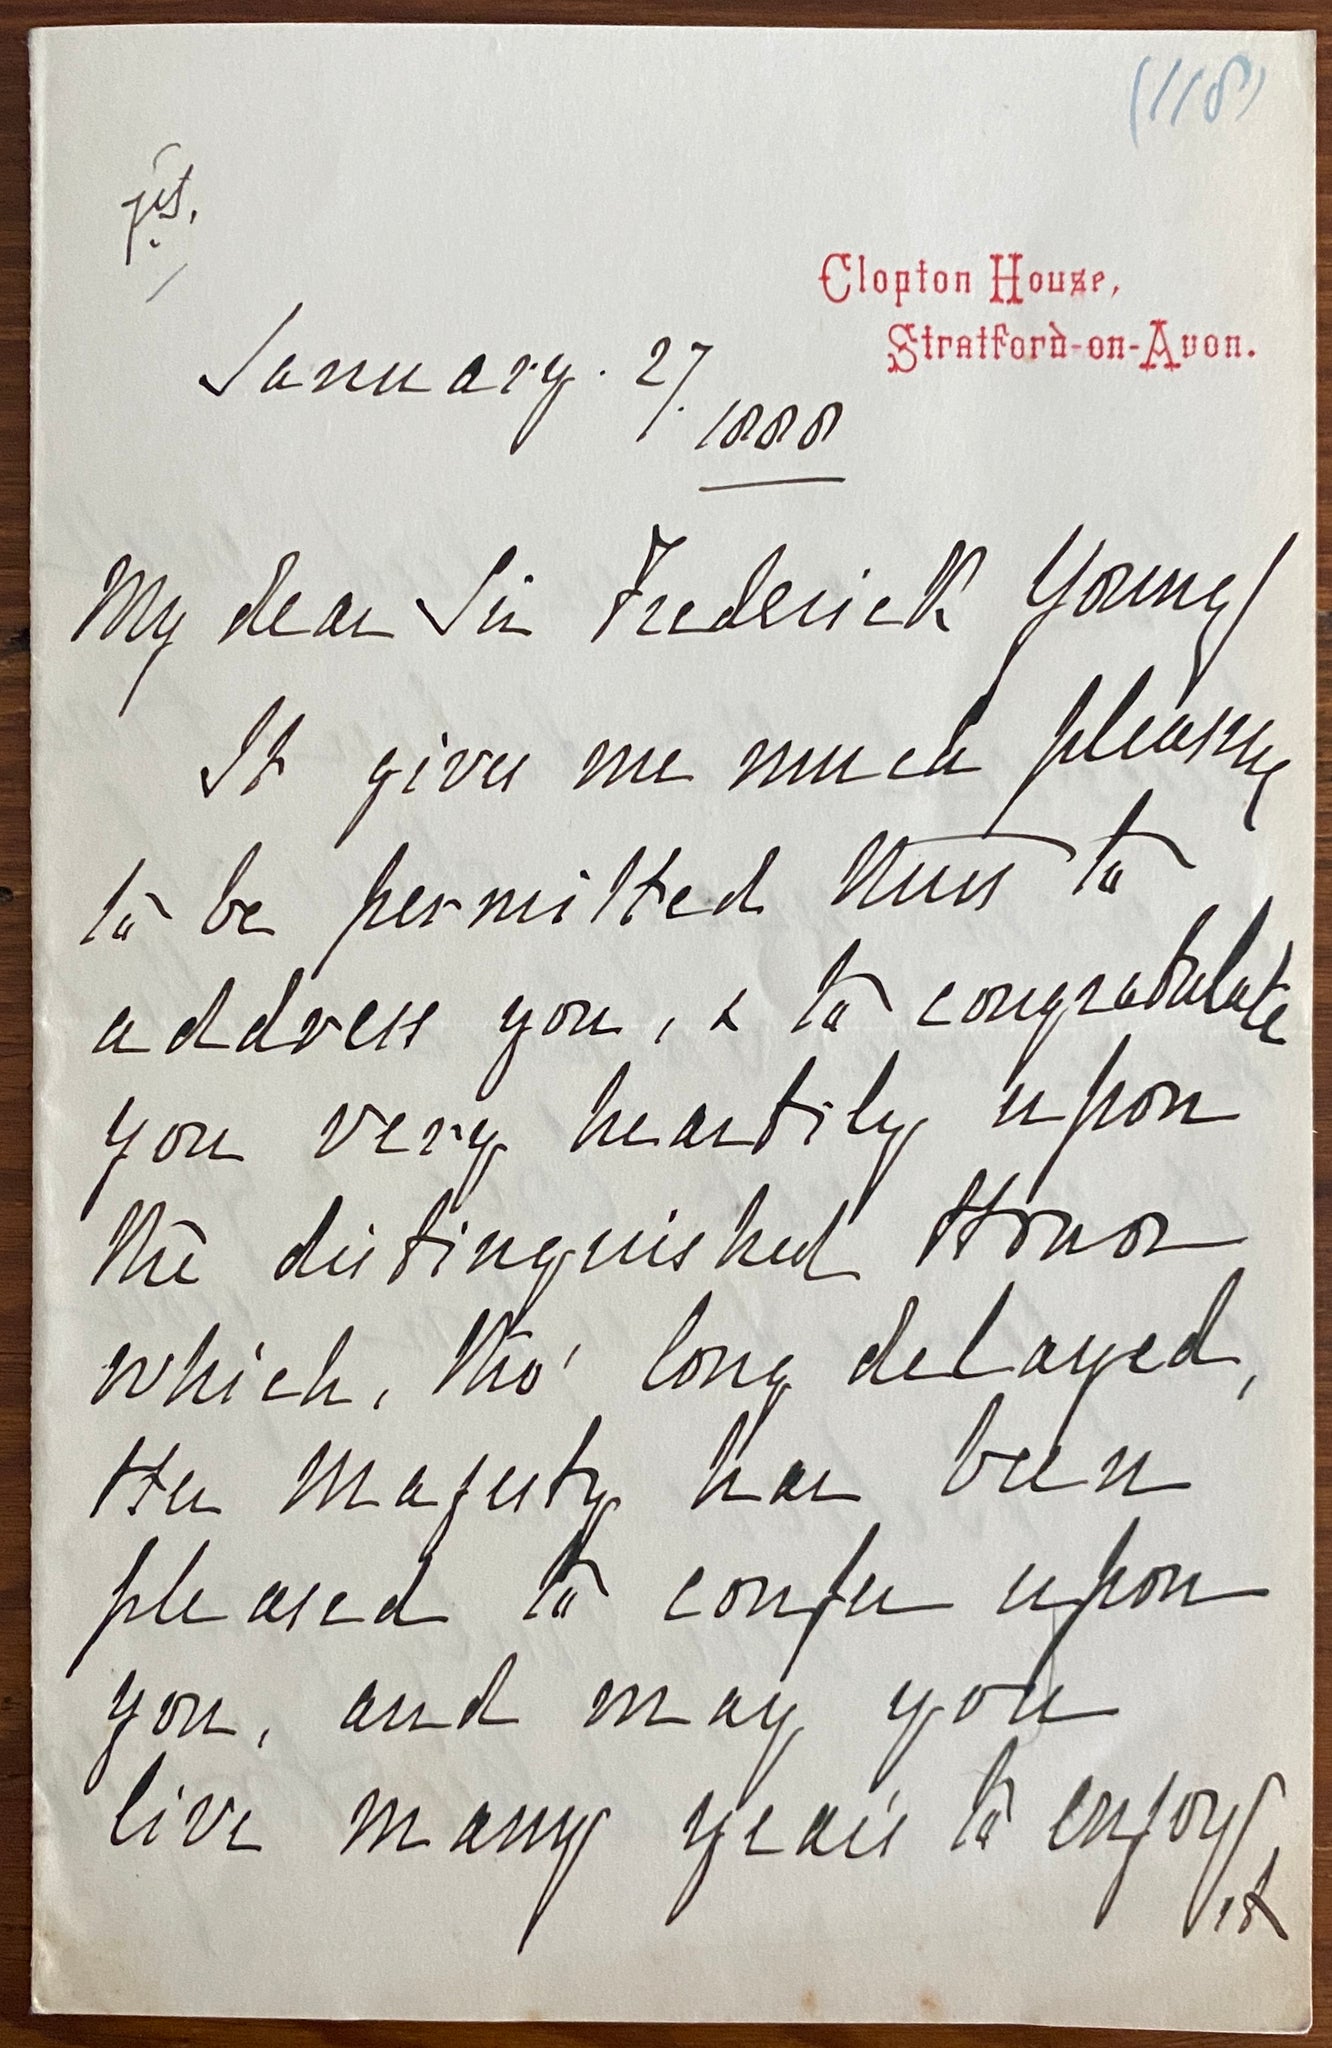 (118)
Clopton House,
Stratford-on-Avon.
January. 27.
1888
My dear Sir Frederick Young
It gives me much pleasure
to be permitted thus to
address you, & to congratulate
you very heartily upon
the distinguished Honor
which, tho' long delayed,
Her Majesty has been
pleased to confer upon
you, and may you
live many years to enjoy
it